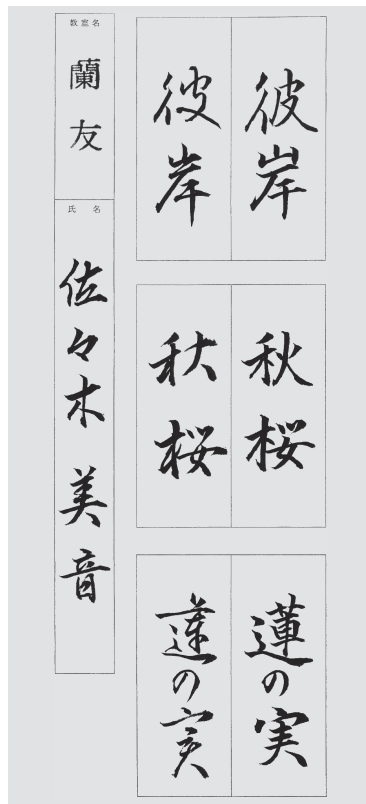 彼岸
彼岸
秋桜
秋桜
蓮の実
蓮の実
教室名
蘭友
氏名
佐々木美音